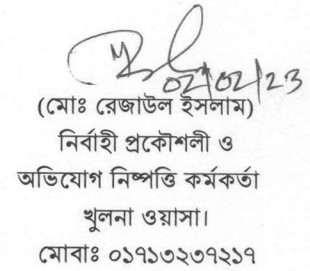 02/02/23
(মোঃ রেজাউল ইসলাম)
নির্বাহী প্রকৌশলী ও
অভিযোগ নিষ্পত্তি কর্মকর্তা
খুলনা ওয়াসা।
মোবাঃ ০১৭১৩২৩৭২১৭